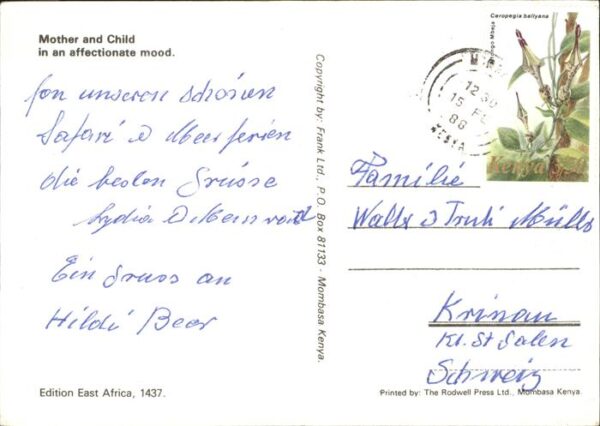 Mother and Child
in an affectionate mood.
Von unseren schönen
Safari & Meerferien
die besten Grüsse
Lydia &
Ein Gruss an
Hildi Beer
Edition East Africa, 1437.
Copyright by: Frank Ltd., P.O. Box 81133 - Mombasa Kenya.
Ceropegia ballyana
Mbeja
Kenya
12 30
15 FE
88
KENYA
Familie
Walter & Trudi Müller
Krinau
Kt. St Galen
Schweiz
Printed by: The Rodwell Press Ltd., Mombasa Kenya.